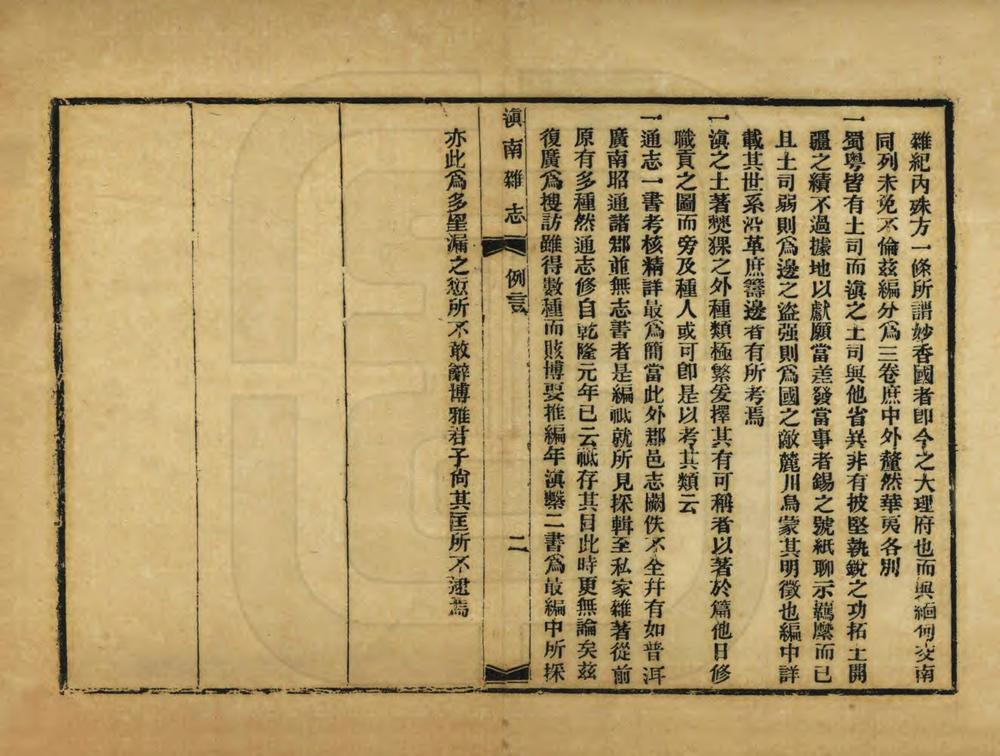 雜紀內殊方一條所謂妙香國者卽今之大理府也而與緬甸交南
同列未免不倫茲編分爲三卷庶中外釐然華夷各別
一蜀粵皆有土司而滇之土司與他省異非有披堅執銳之功拓土開
疆之績不過據地以獻願當差發當事者錫之號紙聊示羈縻而已
且土司弱則爲邊之盜强則爲國之敵麓川烏蒙其明徵也編中詳
載其世系沿革庶籌邊者有所考焉
一滇之土著爨猓之外種類極繁爰擇其有可稱者以著於篇他日修
職貢之圖而旁及種人或可卽是以考其類云
一通志一書考核精詳最爲簡當此外郡邑志闕佚不全幷有如普洱
廣南昭通諸郡並無志書者是編祗就所見採輯至私家雜著從前
原有多種然通志修自乾隆元年已云祗存其目此時更無論矣茲
復廣爲搜訪雖得數種而賅博要推編年滇繫二書爲最編中所採
滇南雜志 例言 二
亦此爲多罣漏之愆所不敢辭博雅君子尙其匡所不逮焉